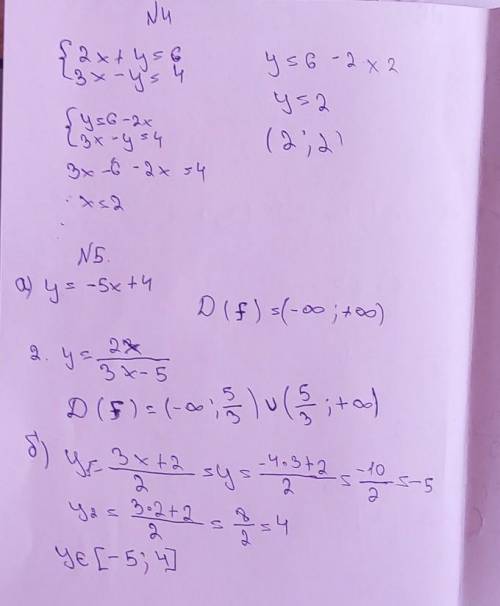 N4
{2x+y=6
{3x-y=4
{y=6-2x
{3x-y=4
3x-6-2x=4
x=2
y=6-2×2
y=2
(2;2)
N5.
а) y=-5x+4
D(f)=(-∞;+∞)
2. y=2x/(3x-5)
D(f)=(-∞;5/3)∪(5/3;+∞)
б) y₁=(3x+2)/2=y=(-4·3+2)/2=-10/2=-5
y₂=(3·2+2)/2=8/2=4
y∈[-5;4]